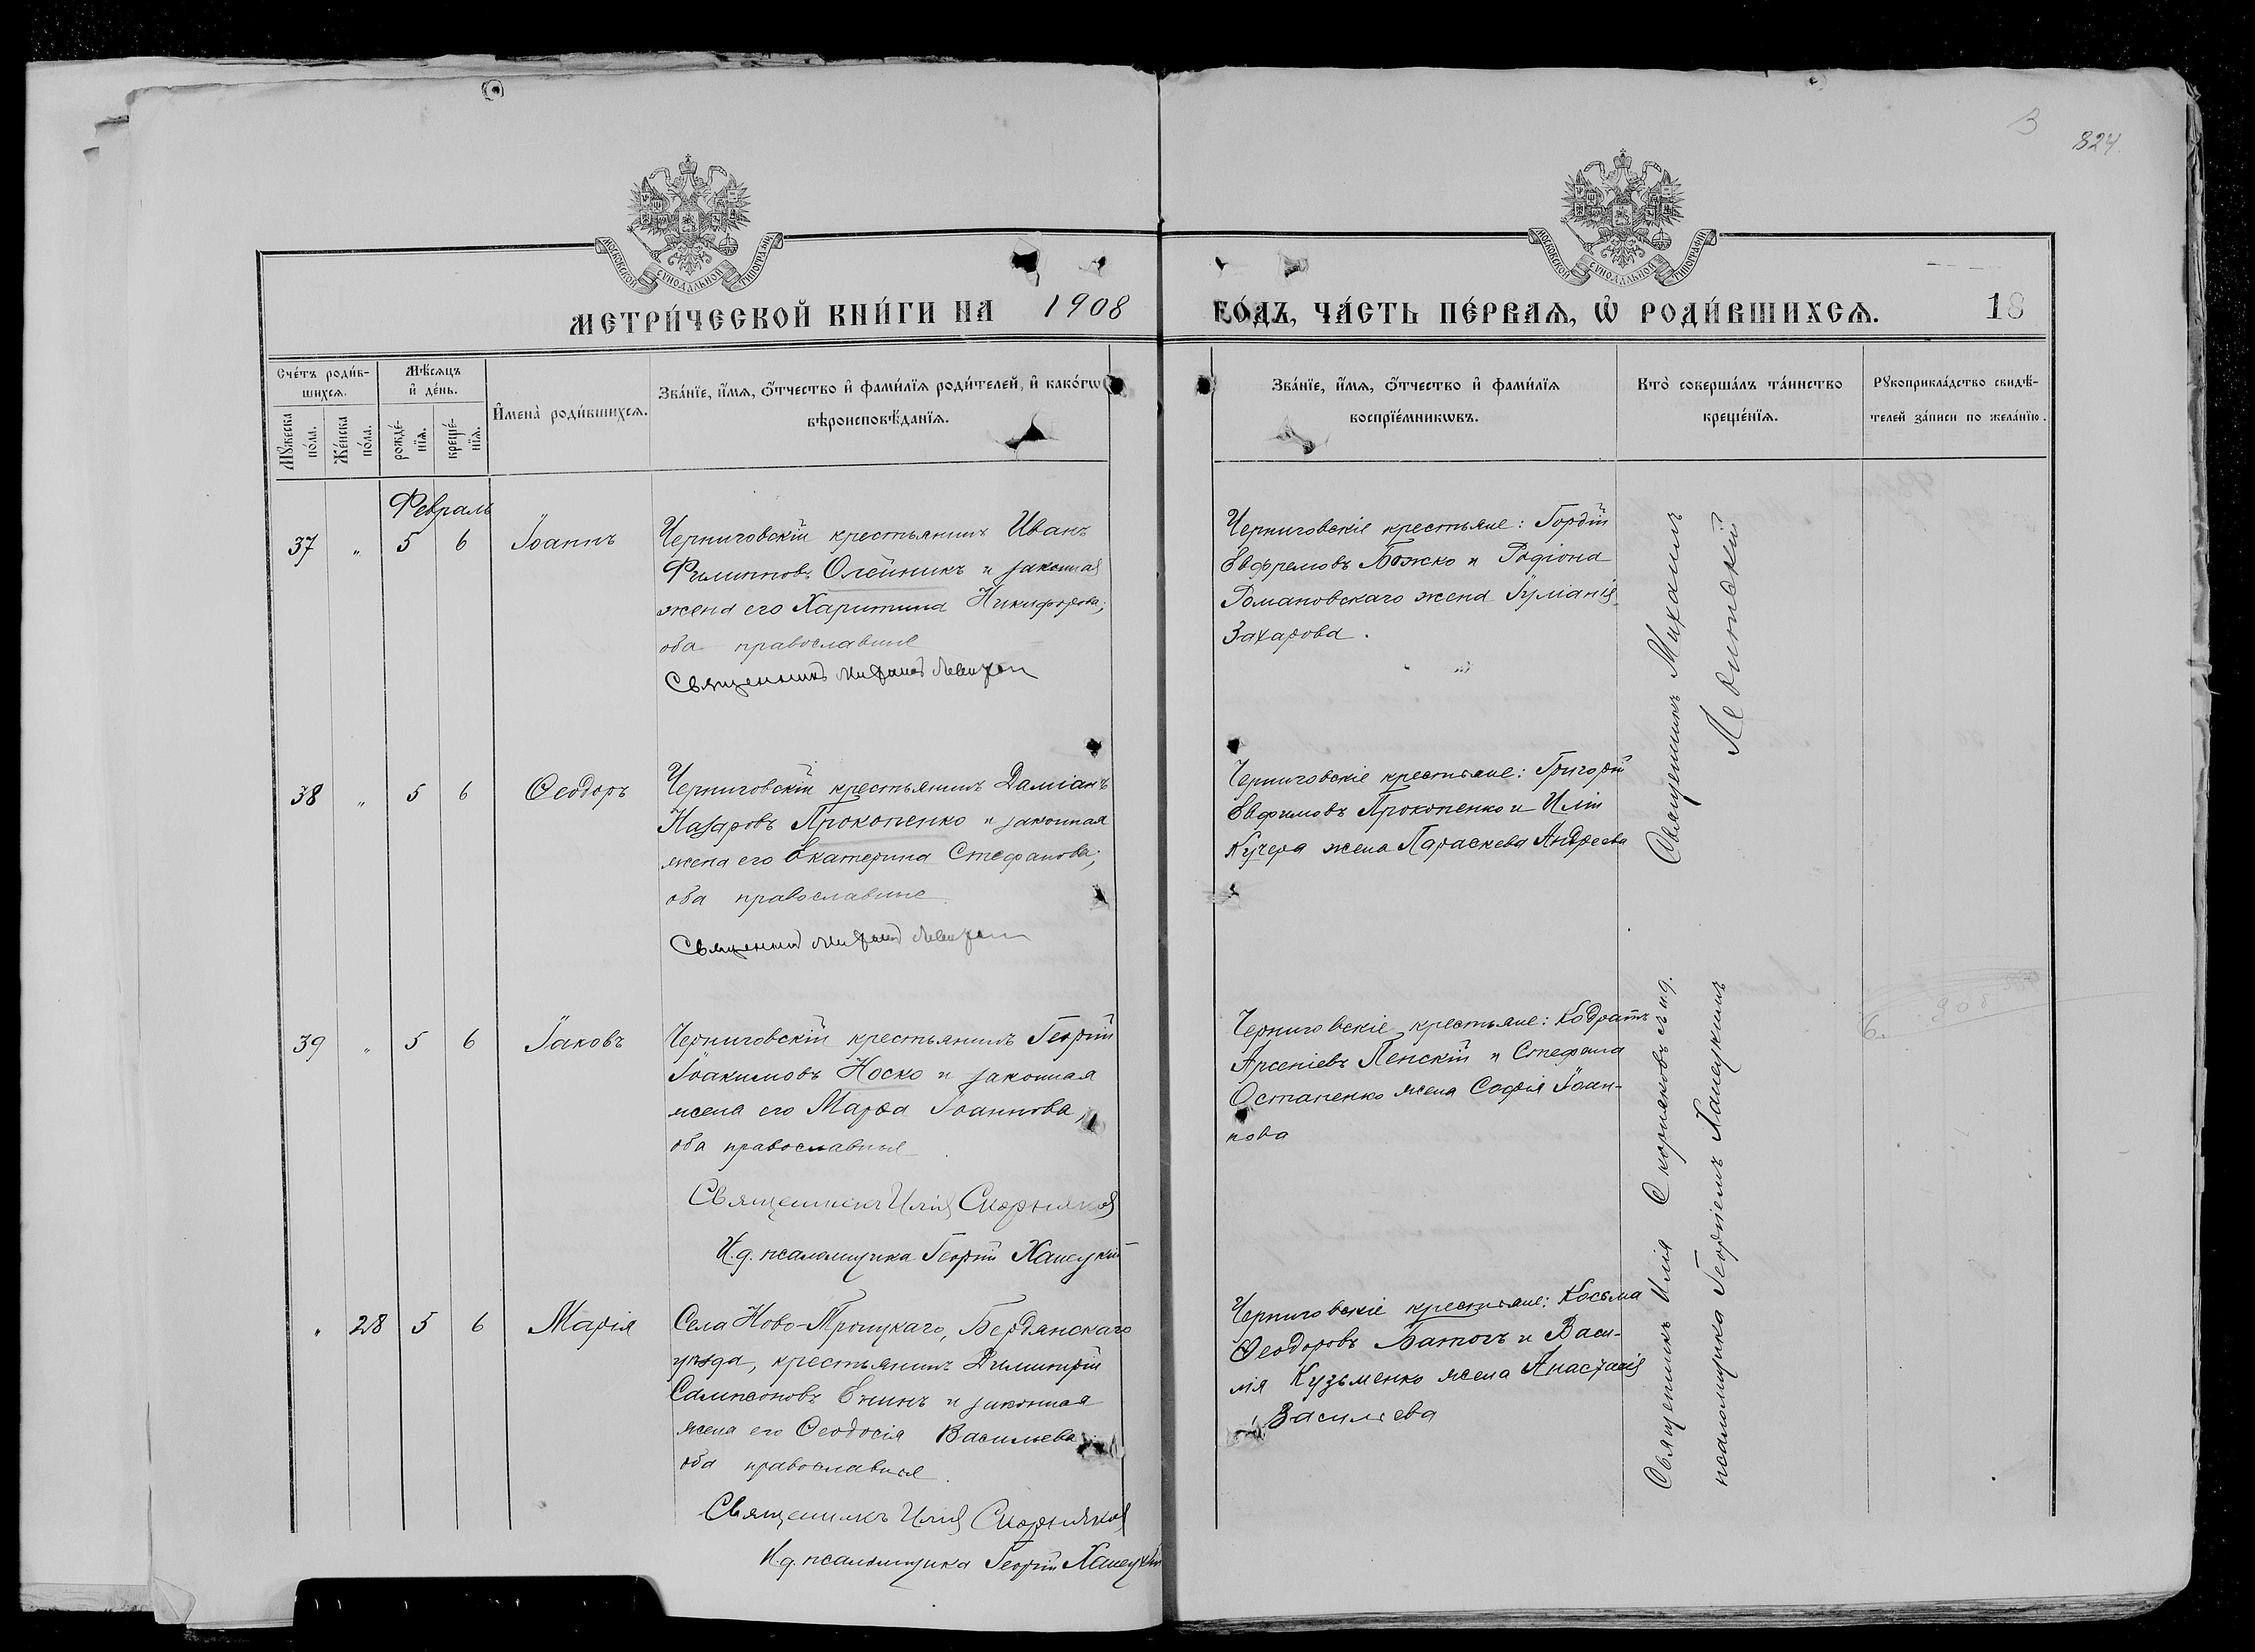 824.
МОСКОВСКОЙ СѴНОДАЛЬНОЙ ТИПОГРАФІИ
МОСКОВСКОЙ СѴНОДАЛЬНОЙ ТИПОГРАФІИ
МЕТРИ́ЧЕСКОЙ КНИ́ГИ НА 1908 ГО́ДЪ, ЧА́СТЬ ПЕ́РВАѦ, Ѡ҆ РОДИ́ВШИХСѦ. 18
Сче́тъ роди́в-
шихсѧ.
Мꙋ́жеска
по́ла.
Же́нска
по́ла.
Мѣ́сѧцъ
и҆ де́нь.
рожде́-
нїѧ.
креще́-
нїѧ.
И҆мена̀ роди́вшихсѧ.
Зва́нїе, и҆́мѧ, ѻ҆́тчество и҆ фами́лїѧ роди́телей, и҆ како́гѡ
вѣроисповѣ́данїѧ.
Зва́нїе, и҆́мѧ, ѻ҆́тчество и҆ фами́лїѧ
воспрїе́мникѡвъ.
Кто̀ соверша́лъ та́инство
креще́нїѧ.
Рꙋкоприкла́дство свидѣ́-
телей за́писи по жела́нїю.
Февраль
37 " 5 6 Іоаннъ
Черниговскій крестьянинъ Иванъ
Филипповъ Олейникъ и законная
жена его Харитина Никифорова;
оба православные
Священникъ Михаилъ
Черниговскіе крестьяне: Гордій
Евфремовъ Божко и Родіона
Романовскаго жена Іуліанія
Захарова.
Священникъ Михаилъ
Левитскій
38 " 5 6 Ѳеодоръ
Черниговскій крестьянинъ Даміанъ
Назаровъ Прокопенко и законная
жена его Екатерина Стефанова;
оба православные
Священникъ Михаилъ
Черниговскіе крестьяне: Григорій
Евфимовъ Прокопенко и Иліи
Кучера жена Параскева Андреева
39 " 5 6 Іаковъ
Черниговскій крестьянинъ Георгій
Іоакимовъ Носко и законная
жена его Марѳа Іоаннова,
оба православные
Священникъ Илія Скорняковъ
И.д. псаломщика Георгій Ханецкій
Черниговскіе крестьяне: Кодратъ
Арсеніевъ Пенскій и Стефана
Остапенко жена Софія Іоан-
нова
Священникъ Илія Скорняковъ съ и.д.
псаломщика Георгіемъ Ханецкимъ
" 28 5 6 Марія
Села Ново-Троицкаго, Бердянскаго
уѣзда, крестьянинъ Димитрій
Сампсоновъ Енинъ и законная
жена его Ѳеодосія Васильева
оба православные
Священникъ Илія Скорняковъ
И.д. псаломщика Георгій Ханецкій
Черниговскіе крестьяне: Косьма
Ѳеодоровъ Батогъ и Васи-
лія Кузьменко жена Анастасія
Васильева